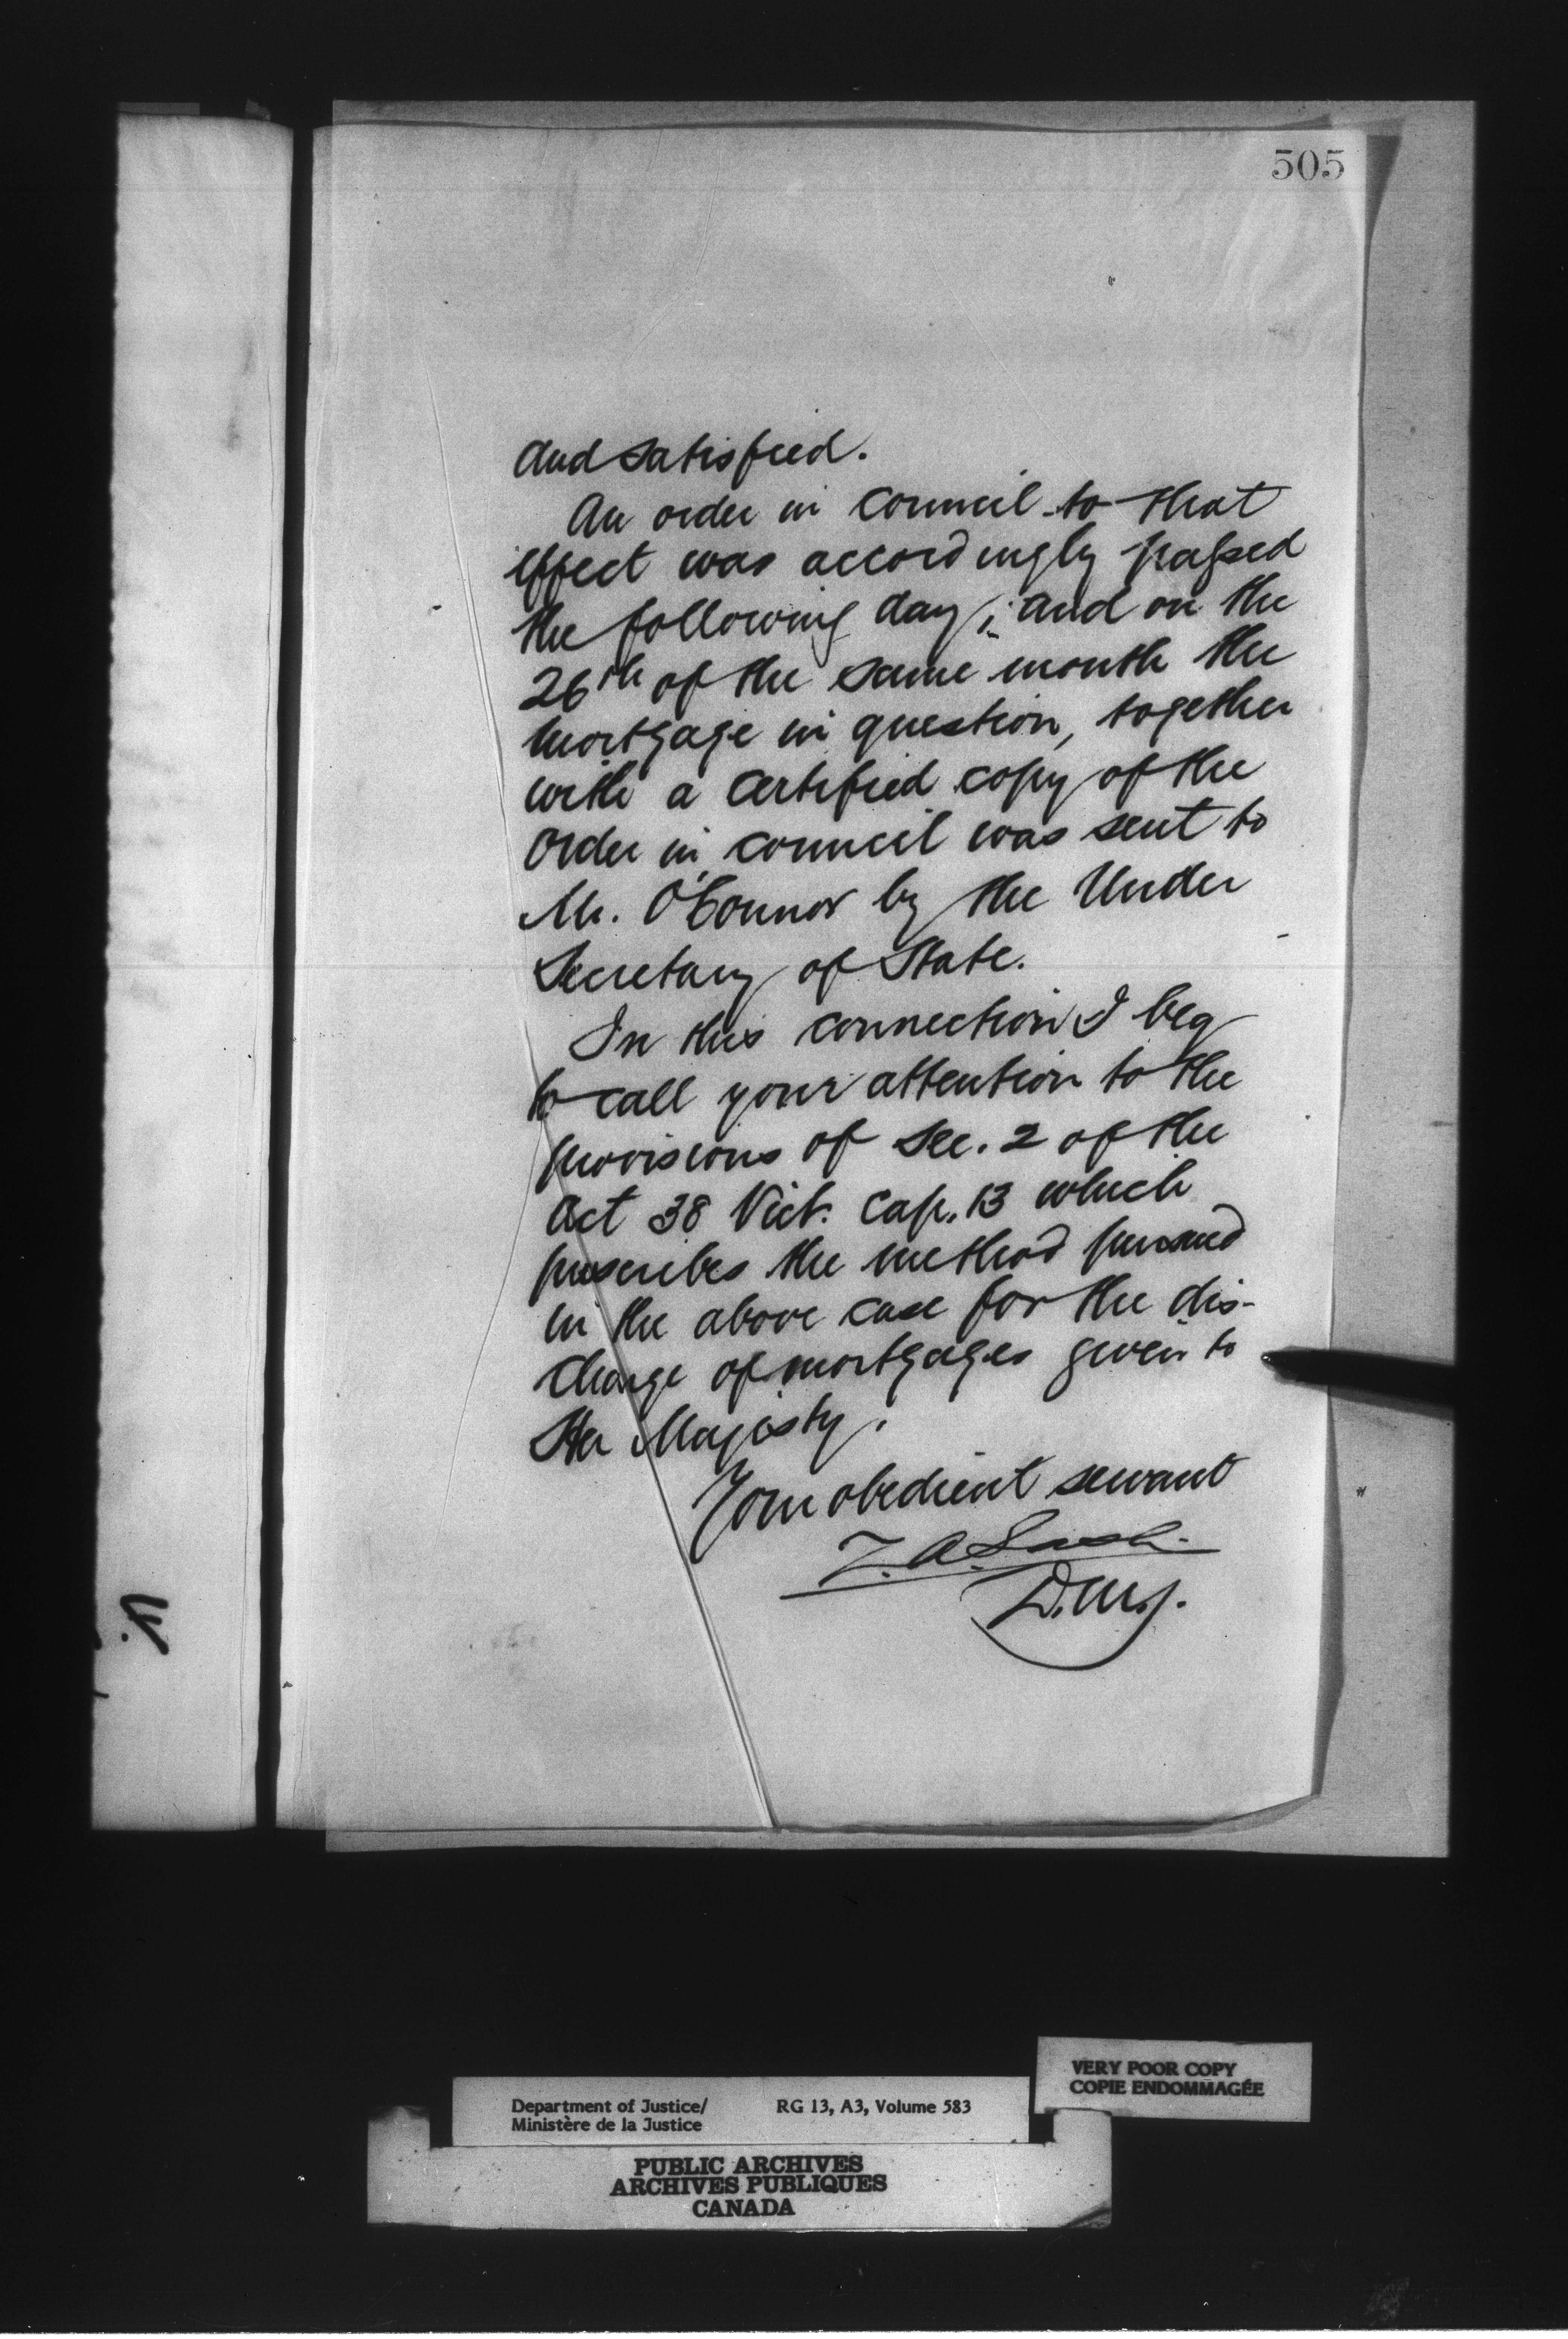 505
and satisfied.
An order in Council to that
effect was accordingly passed
the following day; and on the
26th of the same month the
mortgage in question, together
with a certified copy of the
Order in Council was sent to
Mr. O'Connor by the Under
Secretary of State.
In this connection I beg
to call your attention to the
provisions of Sec. 2 of the
Act 38 Vict. Cap. 13 which
prescribes the method pursued
in the above case for the dis-
charge of mortgages given to
Her Majesty.
Your obedient servant
Z. A. Lash.
D.M.J.
VERY POOR COPY
COPIE ENDOMMAGÉE
Department of Justice/ RG 13, A3, Volume 583
Ministère de la Justice
PUBLIC ARCHIVES
ARCHIVES PUBLIQUES
CANADA